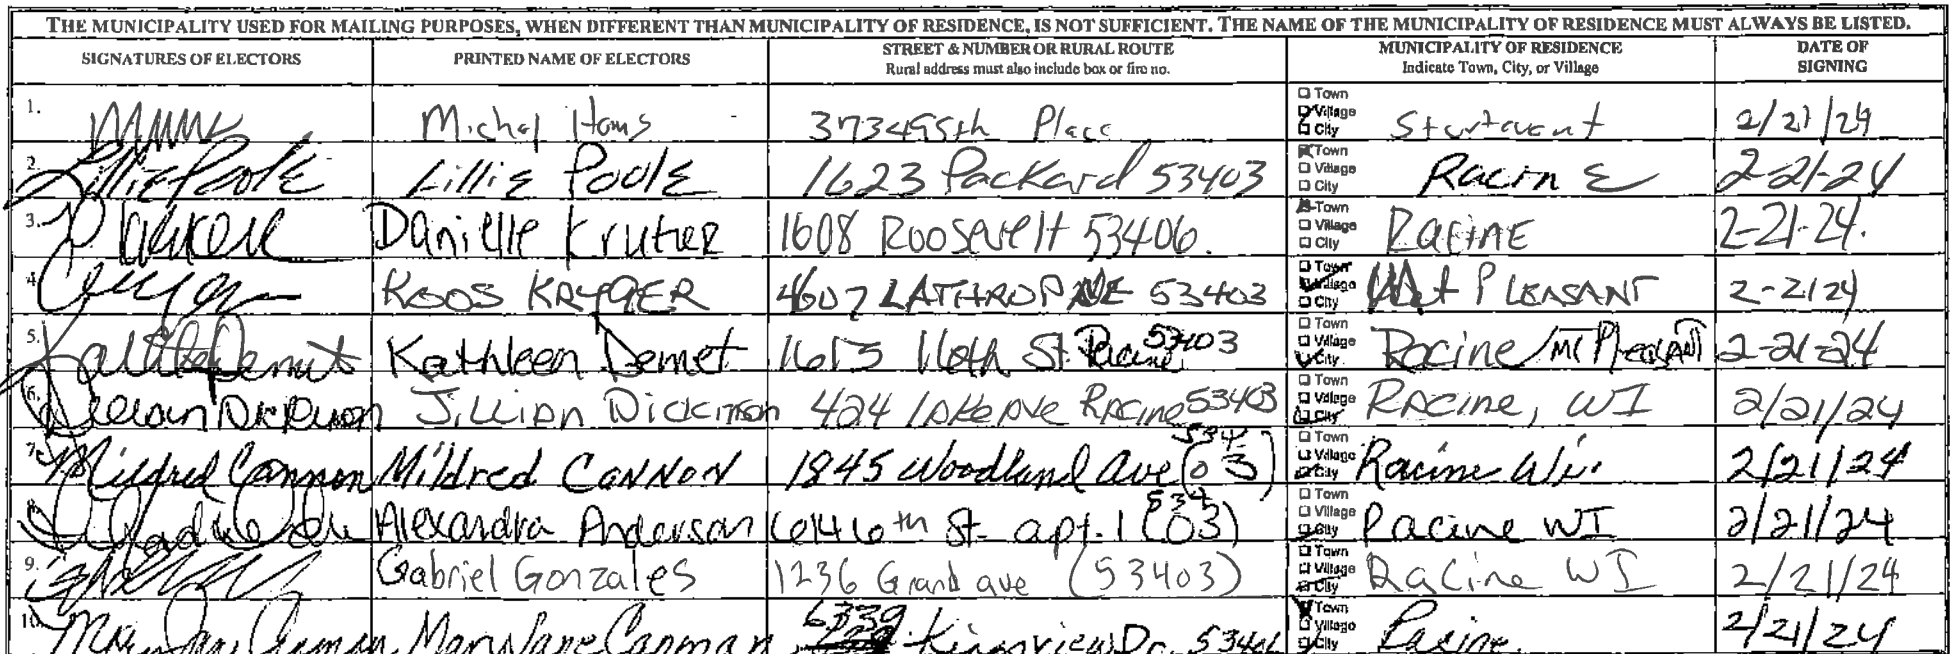 THE MUNICIPALITY USED FOR MAILING PURPOSES, WHEN DIFFERENT THAN MUNICIPALITY OF RESIDENCE, IS NOT SUFFICIENT. THE NAME OF THE MUNICIPALITY OF RESIDENCE MUST ALWAYS BE LISTED.
SIGNATURES OF ELECTORS PRINTED NAME OF ELECTORS STREET & NUMBER OR RURAL ROUTE Rural address must also include box or fire no. MUNICIPALITY OF RESIDENCE Indicate Town, City, or Village DATE OF SIGNING
1. Michal 5th Place Town Village City Sturtevant 2/21/24
2. Lillie Poole Lillie Poole 1623 Packard 53403 Town Village City Racine 2-21-24
3. Danielle 1608 Roosevelt 53406. Town Village City Racine 2-21-24.
4. KOOS KRYGER 4607 LATHROP AVE 53403 Town Village City Mt PLEASANT 2-2124
5. Kathleen Demet 16th St. Racine 53403 Town Village City Racine / Mt Pleasant 2-21-24
6. Jillian Dickinson 424 Lake Ave Racine 53403 Town Village City Racine, WI 2/21/24
7. Mildred Cannon Mildred CANNON 1845 Woodland Ave (53403) Town Village City Racine Wi. 2/21/24
8. Alexandra Anderson 614 6th St. apt. 1 (53403) Town Village City Racine WI 2/21/24
9. Gabriel Gonzales 1236 Grand ave (53403) Town Village City Racine WI 2/21/24
10. Mary Jane Carman 6339 Kingsview Dr. 53406 Town Village City Racine 2/21/24